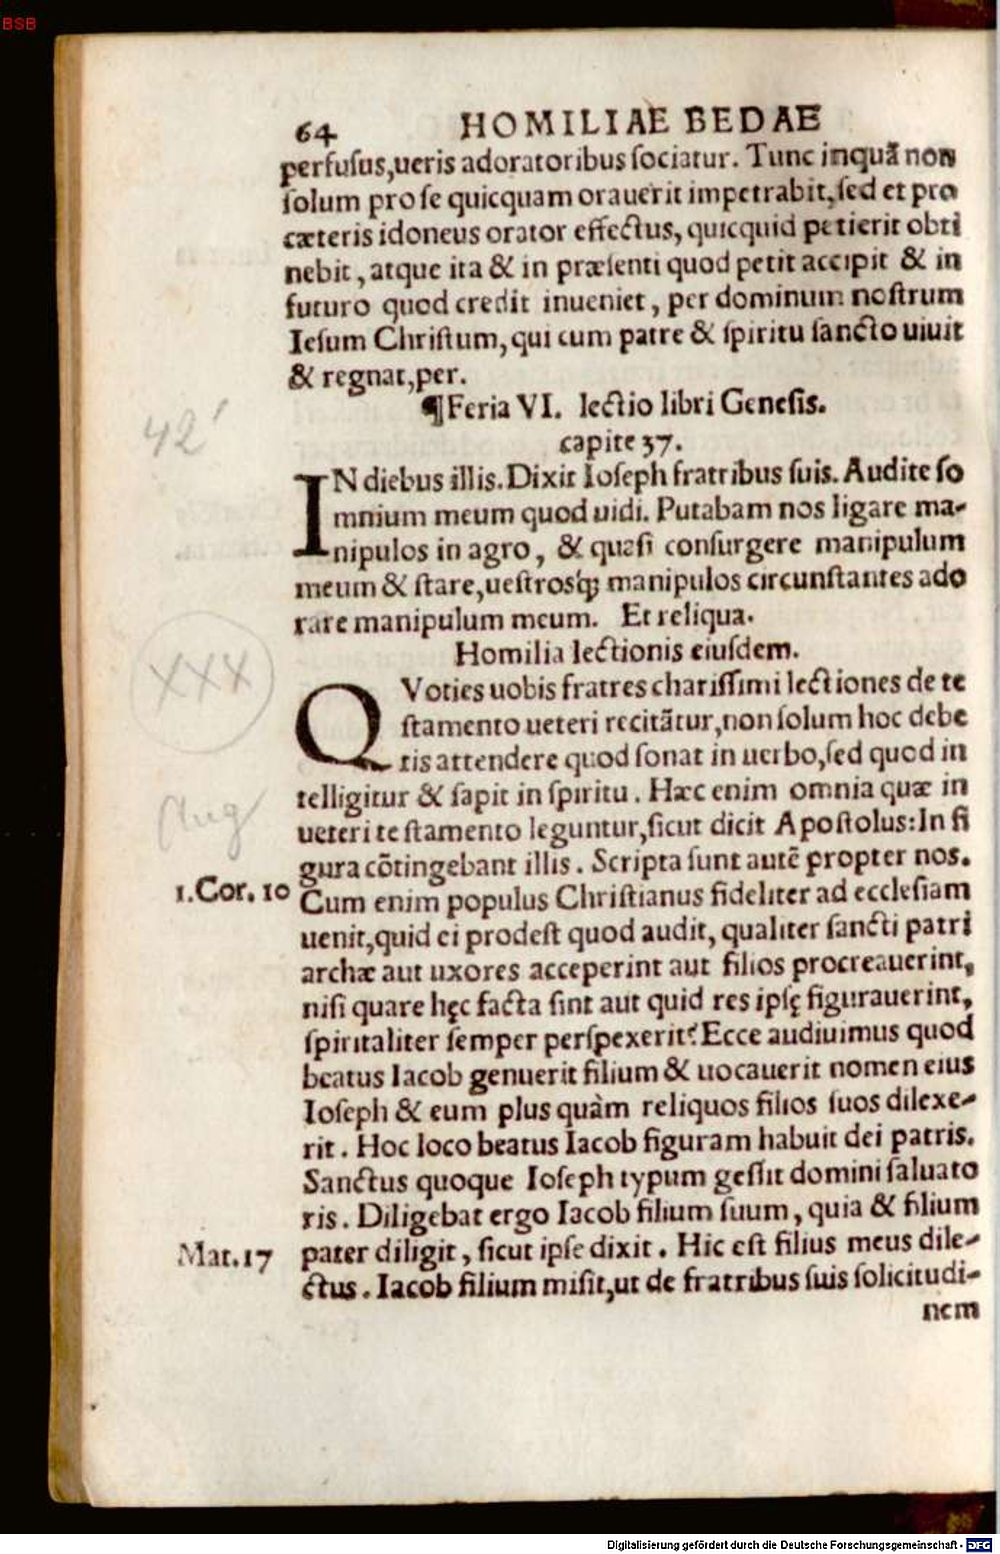 BSB
64 HOMILIAE BEDAE
perfusus,ueris adoratoribus sociatur. Tunc inquã non
solum pro se quicquam orauerit impetrabit, sed et pro
cæteris idoneus orator effectus, quicquid petierit obti
nebit, atque ita & in præsenti quod petit accipit & in
futuro quod credit inueniet, per dominum nostrum
Iesum Christum, qui cum patre & spiritu sancto uiuit
& regnat,per.
¶Feria VI. lectio libri Genesis.
capite 37.
42'
IN diebus illis. Dixit Ioseph fratribus suis. Audite so
mnium meum quod uidi. Putabam nos ligare ma-
nipulos in agro, & quasi consurgere manipulum
meum & stare, uestrosq; manipulos circunstantes ado
rare manipulum meum. Et reliqua.
Homilia lectionis eiusdem.
XXX
QVoties uobis fratres charissimi lectiones de te
stamento ueteri recitãtur,non solum hoc debe
tis attendere quod sonat in uerbo,sed quod in
telligitur & sapit in spiritu. Hæc enim omnia quæ in
Aug
ueteri testamento leguntur,sicut dicit Apostolus:In fi
gura cõtingebant illis. Scripta sunt autẽ propter nos.
1.Cor. 10
Cum enim populus Christianus fideliter ad ecclesiam
uenit,quid ei prodest quod audit, qualiter sancti patri
archæ aut uxores acceperint aut filios procreauerint,
nisi quare hęc facta sint aut quid res ipsę figurauerint,
spiritaliter semper perspexerit? Ecce audiuimus quod
beatus Iacob genuerit filium & uocauerit nomen eius
Ioseph & eum plus quàm reliquos filios suos dilexe-
rit. Hoc loco beatus Iacob figuram habuit dei patris.
Sanctus quoque Ioseph typum gessit domini saluato
ris. Diligebat ergo Iacob filium suum, quia & filium
Mat.17
pater diligit, sicut ipse dixit. Hic est filius meus dile-
ctus. Iacob filium misit,ut de fratribus suis solicitudi-
nem
Digitalisierung gefördert durch die Deutsche Forschungsgemeinschaft - DFG